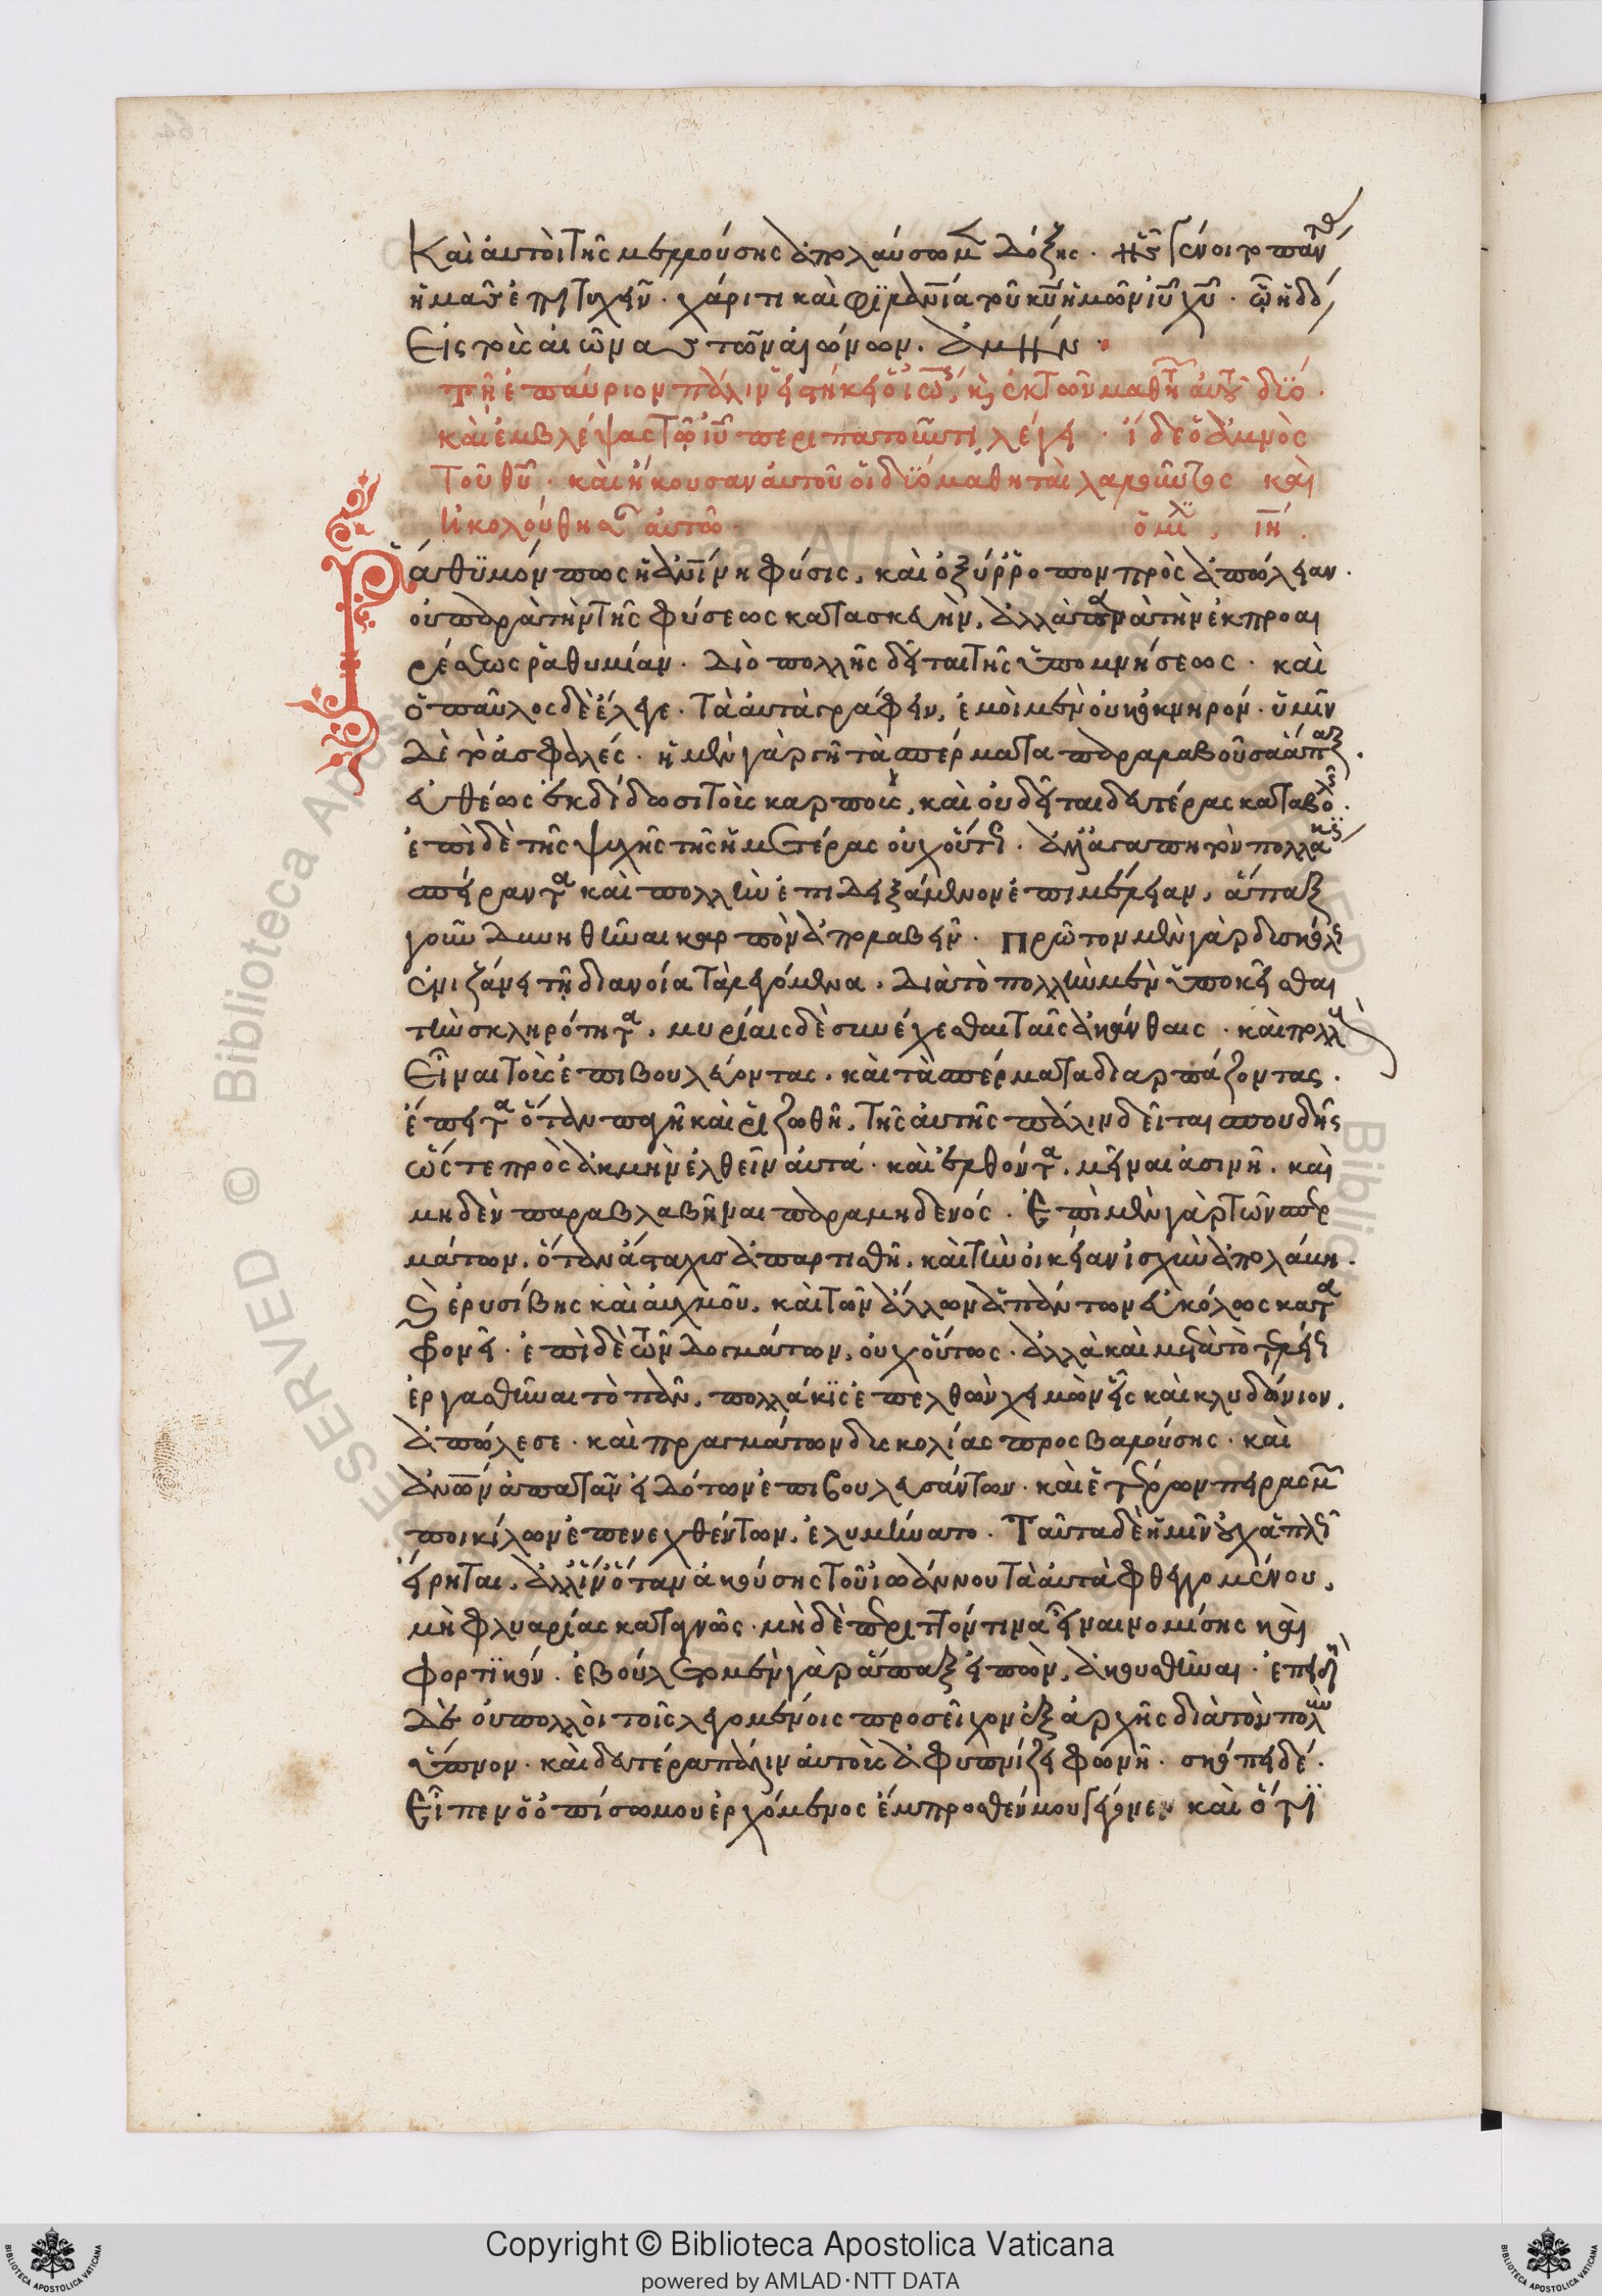 Καὶ αὐτοὶ τῆς μελλούσης ἀπολαύσωμ δόξης · ἧς γένοιτο πάντ
ἡμᾶς ἐπιτυχεῖν · χάριτι καὶ φιλανία τοῦ κυ ἡμῶν ιυ χυ · ᾧ ἡ δό
Εἰς τοὺς αἰῶνας τῶν αἰώνων. ἀμήν ·
τῇ ἐπαύριον πάλιν εἱστήκει ὁ ἰω, κ ἐκ τῶν μαθητ αὐτοῦ δύο ·
καὶ ἐμβλέψας τῷ ιυ περιπατοῦντι, λέγει · ἴδε ὁ ἀμνὸς
τοῦ θυ · καὶ ἤκουσαν αὐτοῦ οἱ δύο μαθηταὶ λαλοῦντος καὶ
ἠκολούθησ αὐτῶ ὁμι, ιη.
Ῥάθυμόν πως ἡ ἀνίνη φύσις, καὶ ὀξύρροπον πρὸς ἀπώλειαν ·
οὐ παρὰ τὴν τῆς φύσεως κατασκευὴν, ἀλλὰ παρὰ τὴν ἐκ προαι
ρέσεως ῥαθυμίαν · Διὸ πολλῆς δεῖται τῆς ὑπομνήσεως · καὶ
ὁ παῦλος δὲ ἔλεγε · Τὰ αὐτὰ γράφειν, ἐμοὶ μὲν οὐκ ὀκνηρόν · ὑμῖν
Δὲ τὸ ἀσφαλές · ἡ μὲν γὰρ γῆ τὰ σπέρματα παραλαβοῦσα ἅπαξ ·
εὐθέως ἐκδίδωσι τοὺς καρποὺς, καὶ οὐ δεῖται δευτέρας καταβολ ·
ἐπὶ δὲ τῆς ψυχῆς τῆς ἡμετέρας οὐχ οὕτ · ἀλλ' ἀγαπητὸν πολλάκις
σπείραντα καὶ πολλὴν ἐπιδειξάμενον ἐπιμέλειαν, ἅπαξ
γοῦν δυνηθῆναι καρπὸν ἀπολαβεῖν · Πρῶτον μὲν γὰρ δυσκόλ
ἐνιζάνει τῇ διανοία τὰ λεγόμενα · Διὰ τὸ πολλὴν μὲν ὑποκεῖσθαι
τὴν σκληρότητα, μυρίαις δὲ συνέχεσθαι ταῖς ἀκάνθαις · καὶ πολλ
Εἶναι τοὺς ἐπιβουλεύοντας · καὶ τὰ σπέρματα διαρπάζοντας ·
ἔπειτα ὅταν παγῆ καὶ ῥιζωθῆ, τῆς αὐτῆς πάλιν δεῖται σπουδῆς
ὥστε πρὸς ἀκμὴν ἐλθεῖν αὐτά · καὶ ἐλθόντα, μεῖναι ἀσινῆ, καὶ
μηδὲν παραβλαβῆναι παρὰ μηδενός · Ἐπὶ μὲν γὰρ τῶν σπερ
μάτων, ὅταν ὁ στάχυς ἀπαρτισθῆ, καὶ τὴν οἰκείαν ἰσχὺν ἀπολάβη ·
Σ ἐρυσίβης καὶ αὐχμοῦ, καὶ τῶν ἄλλων ἁπάντων εὐκόλως κατα
φρονεῖ · ἐπὶ δὲ τῶν δογμάτων, οὐχ οὕτως · ἀλλὰ καὶ μετὰ τὸ
ἐργασθῆναι τὸ πᾶν, πολλάκις ἐπελθὼν χειμὼν εἷς καὶ κλυδώνιον,
ἀπώλεσε · καὶ πραγμάτων δυσκολίας προσβαλούσης · καὶ
ἀνων ἀπατᾶν εἰδότων ἐπιβουλευσάντων · καὶ ἑτέρων πειρασμ
ποικίλων ἐπενεχθέντων, ἐλυμήνατο · Ταῦτα δὲ ἡμῖν οὐχ ἁπλ
εἴρηται, ἀλλ' ἵν' ὅταν ἀκούσης τοῦ ἰωάννου τὰ αὐτὰ φθεγγομένου,
μὴ φλυαρίας καταγνῶς · μὴ δὲ περιττόν τινα εἶναι νομίσης καὶ
φορτικόν · ἐβούλετο μὲν γὰρ ἅπαξ εἰπὼν, ἀκουσθῆναι · ἐπειδὴ
Δὲ οὐ πολλοὶ τοῖς λεγομένοις προσεῖχον ἐξ ἀρχῆς διὰ τὸν πολὺν
ὕπνον · καὶ δευτέρα πάλιν αὐτοὺς ἀφυπνίζει φωνῆ · σκόπει δέ ·
Εἶπεν ὁ ὀπίσω μου ἐρχόμενος ἔμπροσθέν μου γέγονεν καὶ ὅτι
Copyright © Biblioteca Apostolica Vaticana
powered by AMLAD·NTT DATA